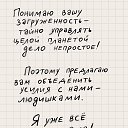 Понимаю вашу
загруженность –
тайно управлять
целой планетой
дело непростое!
Поэтому предлагаю
вам объединить
усилия с нами –
людишками.
Я уже всё